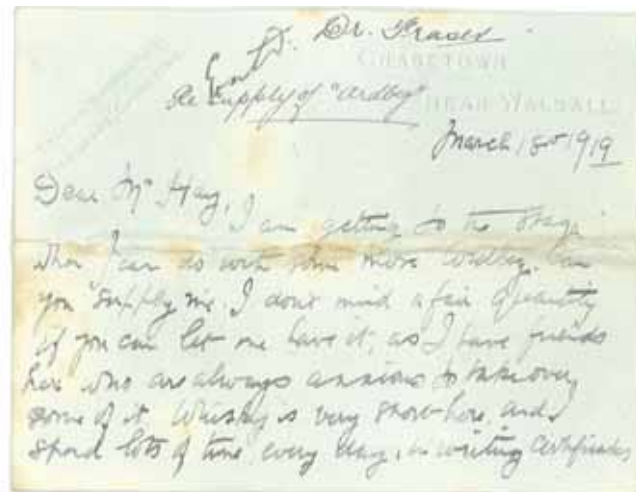 Dr. Fraser
CHASETOWN
Re Supply of "Ardbeg"
NEAR WALSALL
March 18th 1919
Dear Mr Hay,
I am getting to the stage
when I can do with some more Ardbeg. Can
you supply me. I don't mind a fair quantity
if you can let me have it, as I have friends
here who are always anxious to take over
some of it. Whisky is very short here and I
spend lots of time every day, in writing Certificates